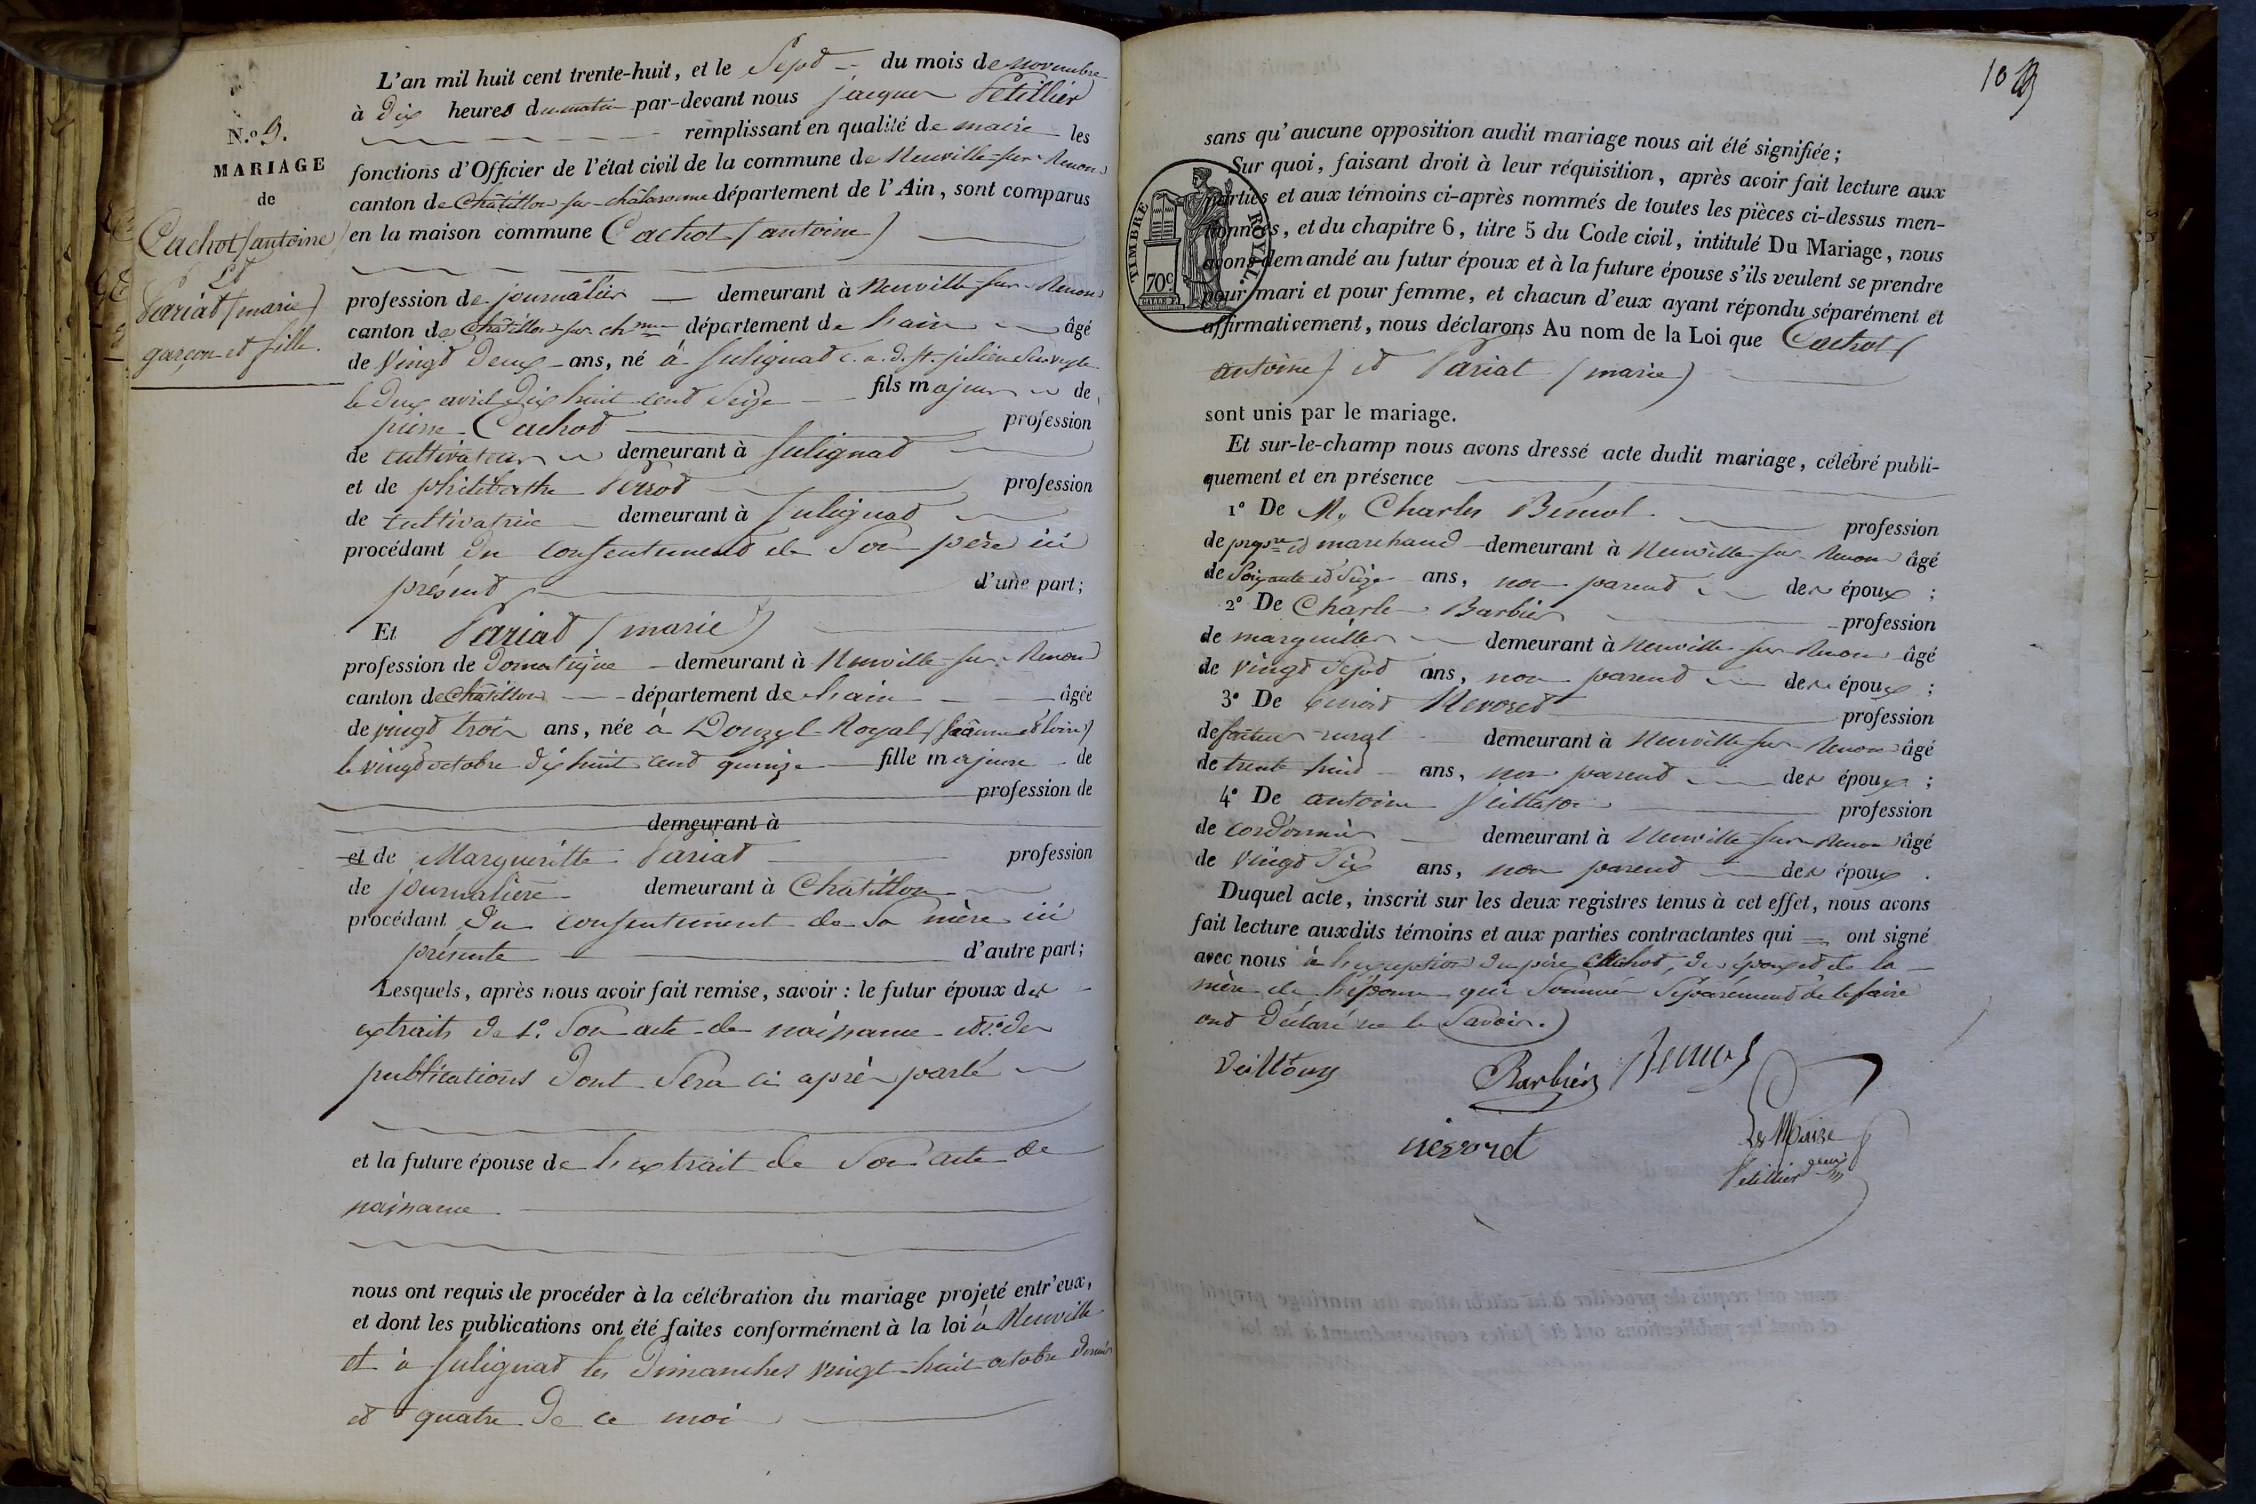 N.º 9.
MARIAGE
de
Cachot (antoine)
Et
Pariat (marie)
garçon et fille.
L'an mil huit cent trente-huit, et le Sept du mois de novembre
à Dix heures du matin par-devant nous jacques Petillier
remplissant en qualité de maire les
fonctions d'Officier de l'état civil de la commune de Neuville-sur-Renon
canton de Châtillon sur chalaronne département de l'Ain, sont comparus
en la maison commune Cachot (antoine)
profession de journalier demeurant à Neuville-sur-Renon
canton de Châtillon sur ch département de L'ain âgé
de Vingt Deux ans, né à Sulignat c. a. d. St. julien Sur veyle
le Deux avril Dix huit cent Seize fils majeur de
pierre Cachot profession
de cultivateur demeurant à Sulignat
et de philiberthe Perrot profession
de cultivatrice demeurant à Sulignat
procédant Du consentement de Son père ici
présent d'une part;
Et Pariat (marie)
profession de Domestique demeurant à Neuville-sur-Renon
canton de Châtillon département de L'ain âgée
de vingt trois ans, née à Donzy-l Royal (Saône et loire)
le vingt octobre dix huit cent quinze fille majeure de
profession de
demeurant à
et de Margueritte Pariat profession
de journalière demeurant à Châtillon
procédant Du consentement de Sa mère ici
présente d'autre part;
Lesquels, après nous avoir fait remise, savoir : le futur époux des
extraits de 1.º Son acte de naissance et 2.º des
publications Dont Sera ci après parlé
et la future épouse de L'extrait de Son acte de
naissance
nous ont requis de procéder à la célébration du mariage projeté entr'eux,
et dont les publications ont été faites conformément à la loi à Neuville
et à Sulignat les Dimanches vingt-huit octobre Dernier
et quatre De ce mois
10
sans qu'aucune opposition audit mariage nous ait été signifiée;
Sur quoi, faisant droit à leur réquisition, après avoir fait lecture aux
parties et aux témoins ci-après nommés de toutes les pièces ci-dessus men-
tionnées, et du chapitre 6, titre 5 du Code civil, intitulé Du Mariage, nous
avons demandé au futur époux et à la future épouse s'ils veulent se prendre
pour mari et pour femme, et chacun d'eux ayant répondu séparément et
affirmativement, nous déclarons Au nom de la Loi que Cachot (
antoine) et Pariat (marie)
TIMBRE ROYAL
70c
sont unis par le mariage.
Et sur-le-champ nous avons dressé acte dudit mariage, célébré publi-
quement et en présence
1º De M. Charles profession
de propre et marchand demeurant à Neuville-sur-Renon âgé
de Soixante et Seize ans, non parent des époux ;
2º De Charle Barbier profession
de marguiller demeurant à Neuville-sur-Renon âgé
de vingt Sept ans, non parent des époux ;
3º De benoit Nevoret profession
de facteur rural demeurant à Neuville-sur-Renon âgé
de trente huit ans, non parent des époux ;
4º De antoine profession
de cordonnier demeurant à Neuville-sur-Renon âgé
de Vingt Six ans, non parent des époux .
Duquel acte, inscrit sur les deux registres tenus à cet effet, nous avons
fait lecture auxdits témoins et aux parties contractantes qui ont signé
avec nous à L'exception du père Cachot, des époux et de la
mère de L'épouse qui Sommés Séparément de le faire
ont Déclaré ne le Savoir.)
Barbier
Le Maire
Petillier